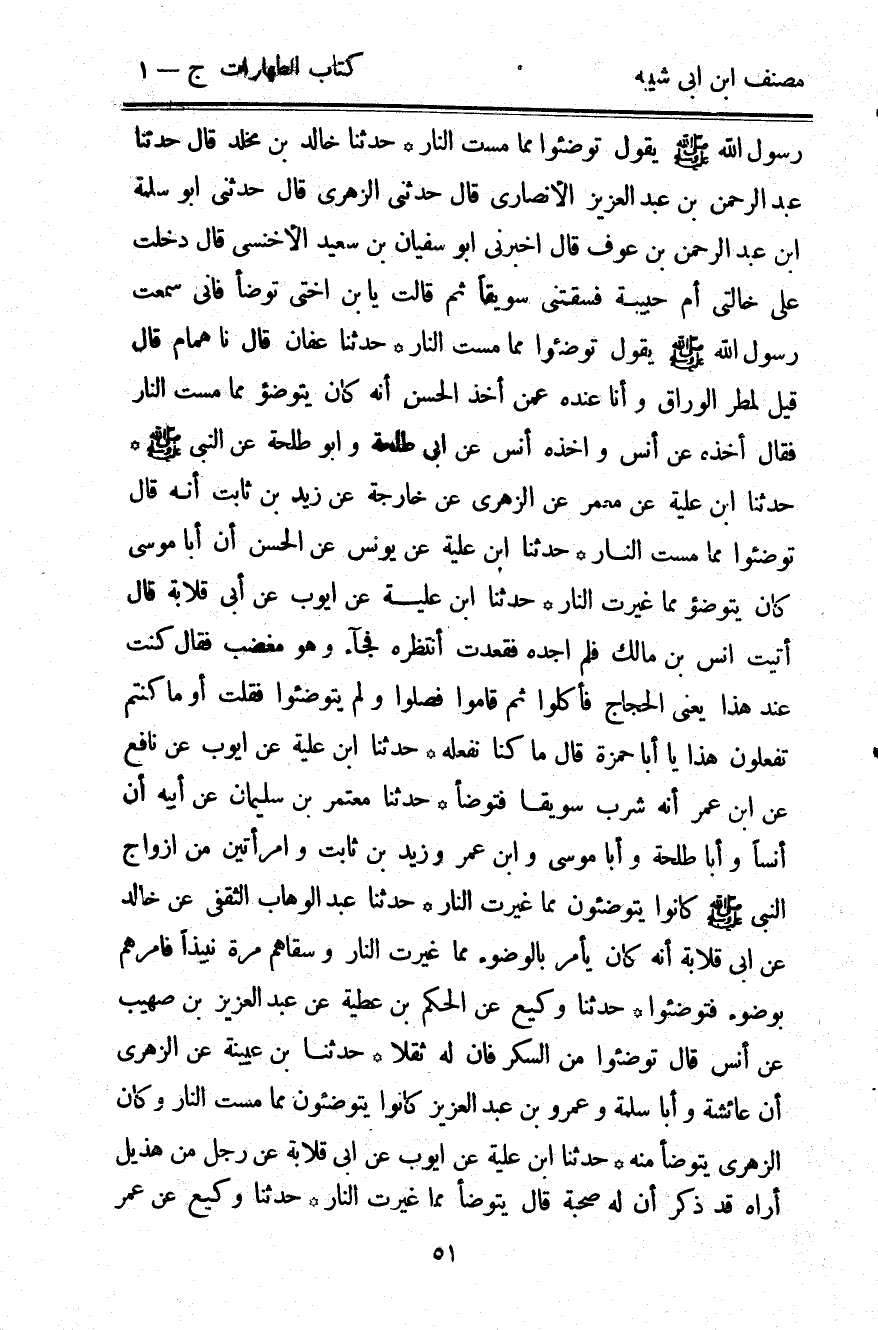 مصنف ابن ابى شيبه
كتاب الطهارات ج — ١
رسول الله ﷺ يقول توضئوا مما مست النار * حدثنا خالد بن مخلد قال حدثنا
عبد الرحمن بن عبد العزيز الأنصارى قال حدثنى الزهرى قال حدثنى ابو سلمة
ابن عبد الرحمن بن عوف قال اخبرنى ابو سفيان بن سعيد الأخنسى قال دخلت
على خالتى أم حبيبة فسقتنى سويقاً ثم قالت يا بن اختى توضأ فانى سمعت
رسول الله ﷺ يقول توضئوا مما مست النار * حدثنا عفان قال نا همام قال
قيل لمطر الوراق و أنا عنده عمن أخذ الحسن أنه كان يتوضؤ مما مست النار
فقال أخذه عن أنس و اخذه أنس عن ابى طلحة و ابو طلحة عن النبى ﷺ *
حدثنا ابن علية عن معمر عن الزهرى عن خارجة عن زيد بن ثابت أنه قال
توضئوا مما مست النار * حدثنا ابن علية عن يونس عن الحسن أن أبا موسى
كان يتوضؤ مما غيرت النار * حدثنا ابن علية عن ايوب عن أبى قلابة قال
أتيت انس بن مالك فلم اجده فقعدت أنتظره فجآء و هو مغضب فقال كنت
عند هذا يعنى الحجاج فأكلوا ثم قاموا فصلوا و لم يتوضئوا فقلت أو ما كنتم
تفعلون هذا يا أبا حمزة قال ما كنا نفعله * حدثنا ابن علية عن ايوب عن نافع
عن ابن عمر أنه شرب سويقا فتوضأ * حدثنا معتمر بن سليمان عن أبيه أن
أنساً و أبا طلحة و أبا موسى و ابن عمر و زيد بن ثابت و امرأتين من ازواج
النبى ﷺ كانوا يتوضئون مما غيرت النار * حدثنا عبد الوهاب الثقفى عن خالد
عن ابى قلابة أنه كان يأمر بالوضوء مما غيرت النار و سقاهم مرة نبيذاً فامرهم
بوضوء فتوضئوا * حدثنا وكيع عن الحكم بن عطية عن عبد العزيز بن صهيب
عن أنس قال توضئوا من السكر فان له ثقلا * حدثنا بن عيينة عن الزهرى
أن عائشة و أبا سلمة و عمرو بن عبد العزيز كانوا يتوضئون مما مست النار وكان
الزهرى يتوضأ منه * حدثنا ابن علية عن ايوب عن ابى قلابة عن رجل من هذيل
أراه قد ذكر أن له صحبة قال يتوضأ مما غيرت النار * حدثنا وكيع عن عمر
٥١